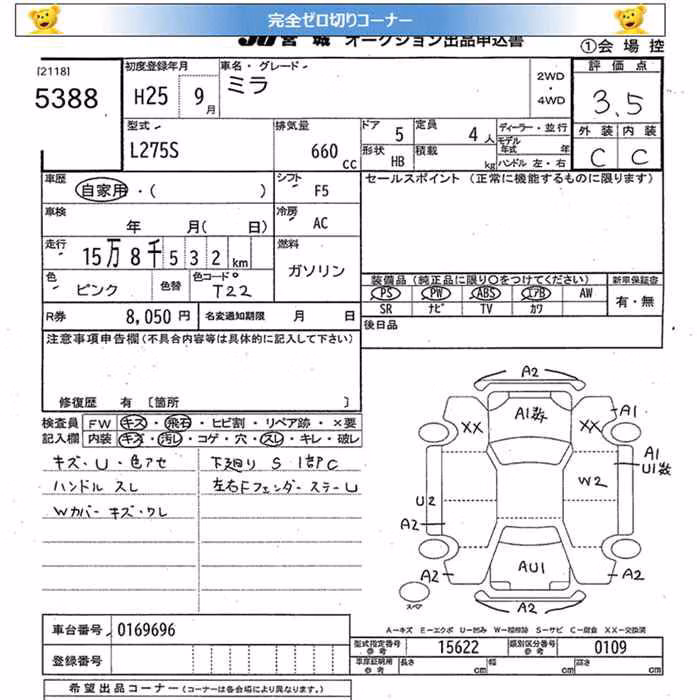 完全ゼロ切りコーナー
JU宮城 オークション出品申込書
①会場控
[2118]
5388
初度登録年月
H25 9月
車名・グレード
ミラ
2WD
・
4WD
評価点
3.5
外装 内装
C C
型式
L275S
排気量
660 cc
ドア 5
定員 4人
形状 HB
積載 kg
ディーラー・並行
モデル年式 年
ハンドル 左・右
車歴
自家用・( )
シフト F5
セールスポイント (正常に機能するものに限ります)
車検
年 月( 日)
冷房 AC
走行
15万8千532km
燃料
ガソリン
色 ピンク
色替
色コード
T22
装備品 (純正品に限り〇をつけてください)
新車保証書
PS PW ABS エアB AW
SR ナビ TV カワ
有・無
R券 8,050円
名変通知期限 月 日
後日品
注意事項申告欄 (不具合内容等は具体的に記入して下さい)
修復歴 有 〔箇所 〕
検査員記入欄
FW キズ・飛石・ヒビ割・リペア跡・×要
内装 キズ・汚レ・コゲ・穴・スレ・キレ・破レ
キズ・U・色アセ
ハンドル スレ
Wカバー キズ・ワレ
下廻り S 1部C
左右Fフェンダーステー U
A2
A1数
XX
XX
A1
A1
U1数
W2
U2
A2
A2
AU1
A2
A2
スペア
A-キズ E-エクボ U-凹み W-補修跡 S-サビ C-腐食 XX-交換済
車台番号 0169696
登録番号
型式指定番号 参考 15622
類別区分番号 参考 0109
車庫証明用 参考
長さ cm
幅 cm
高さ cm
希望出品コーナー (コーナーは各会場により異なります。)